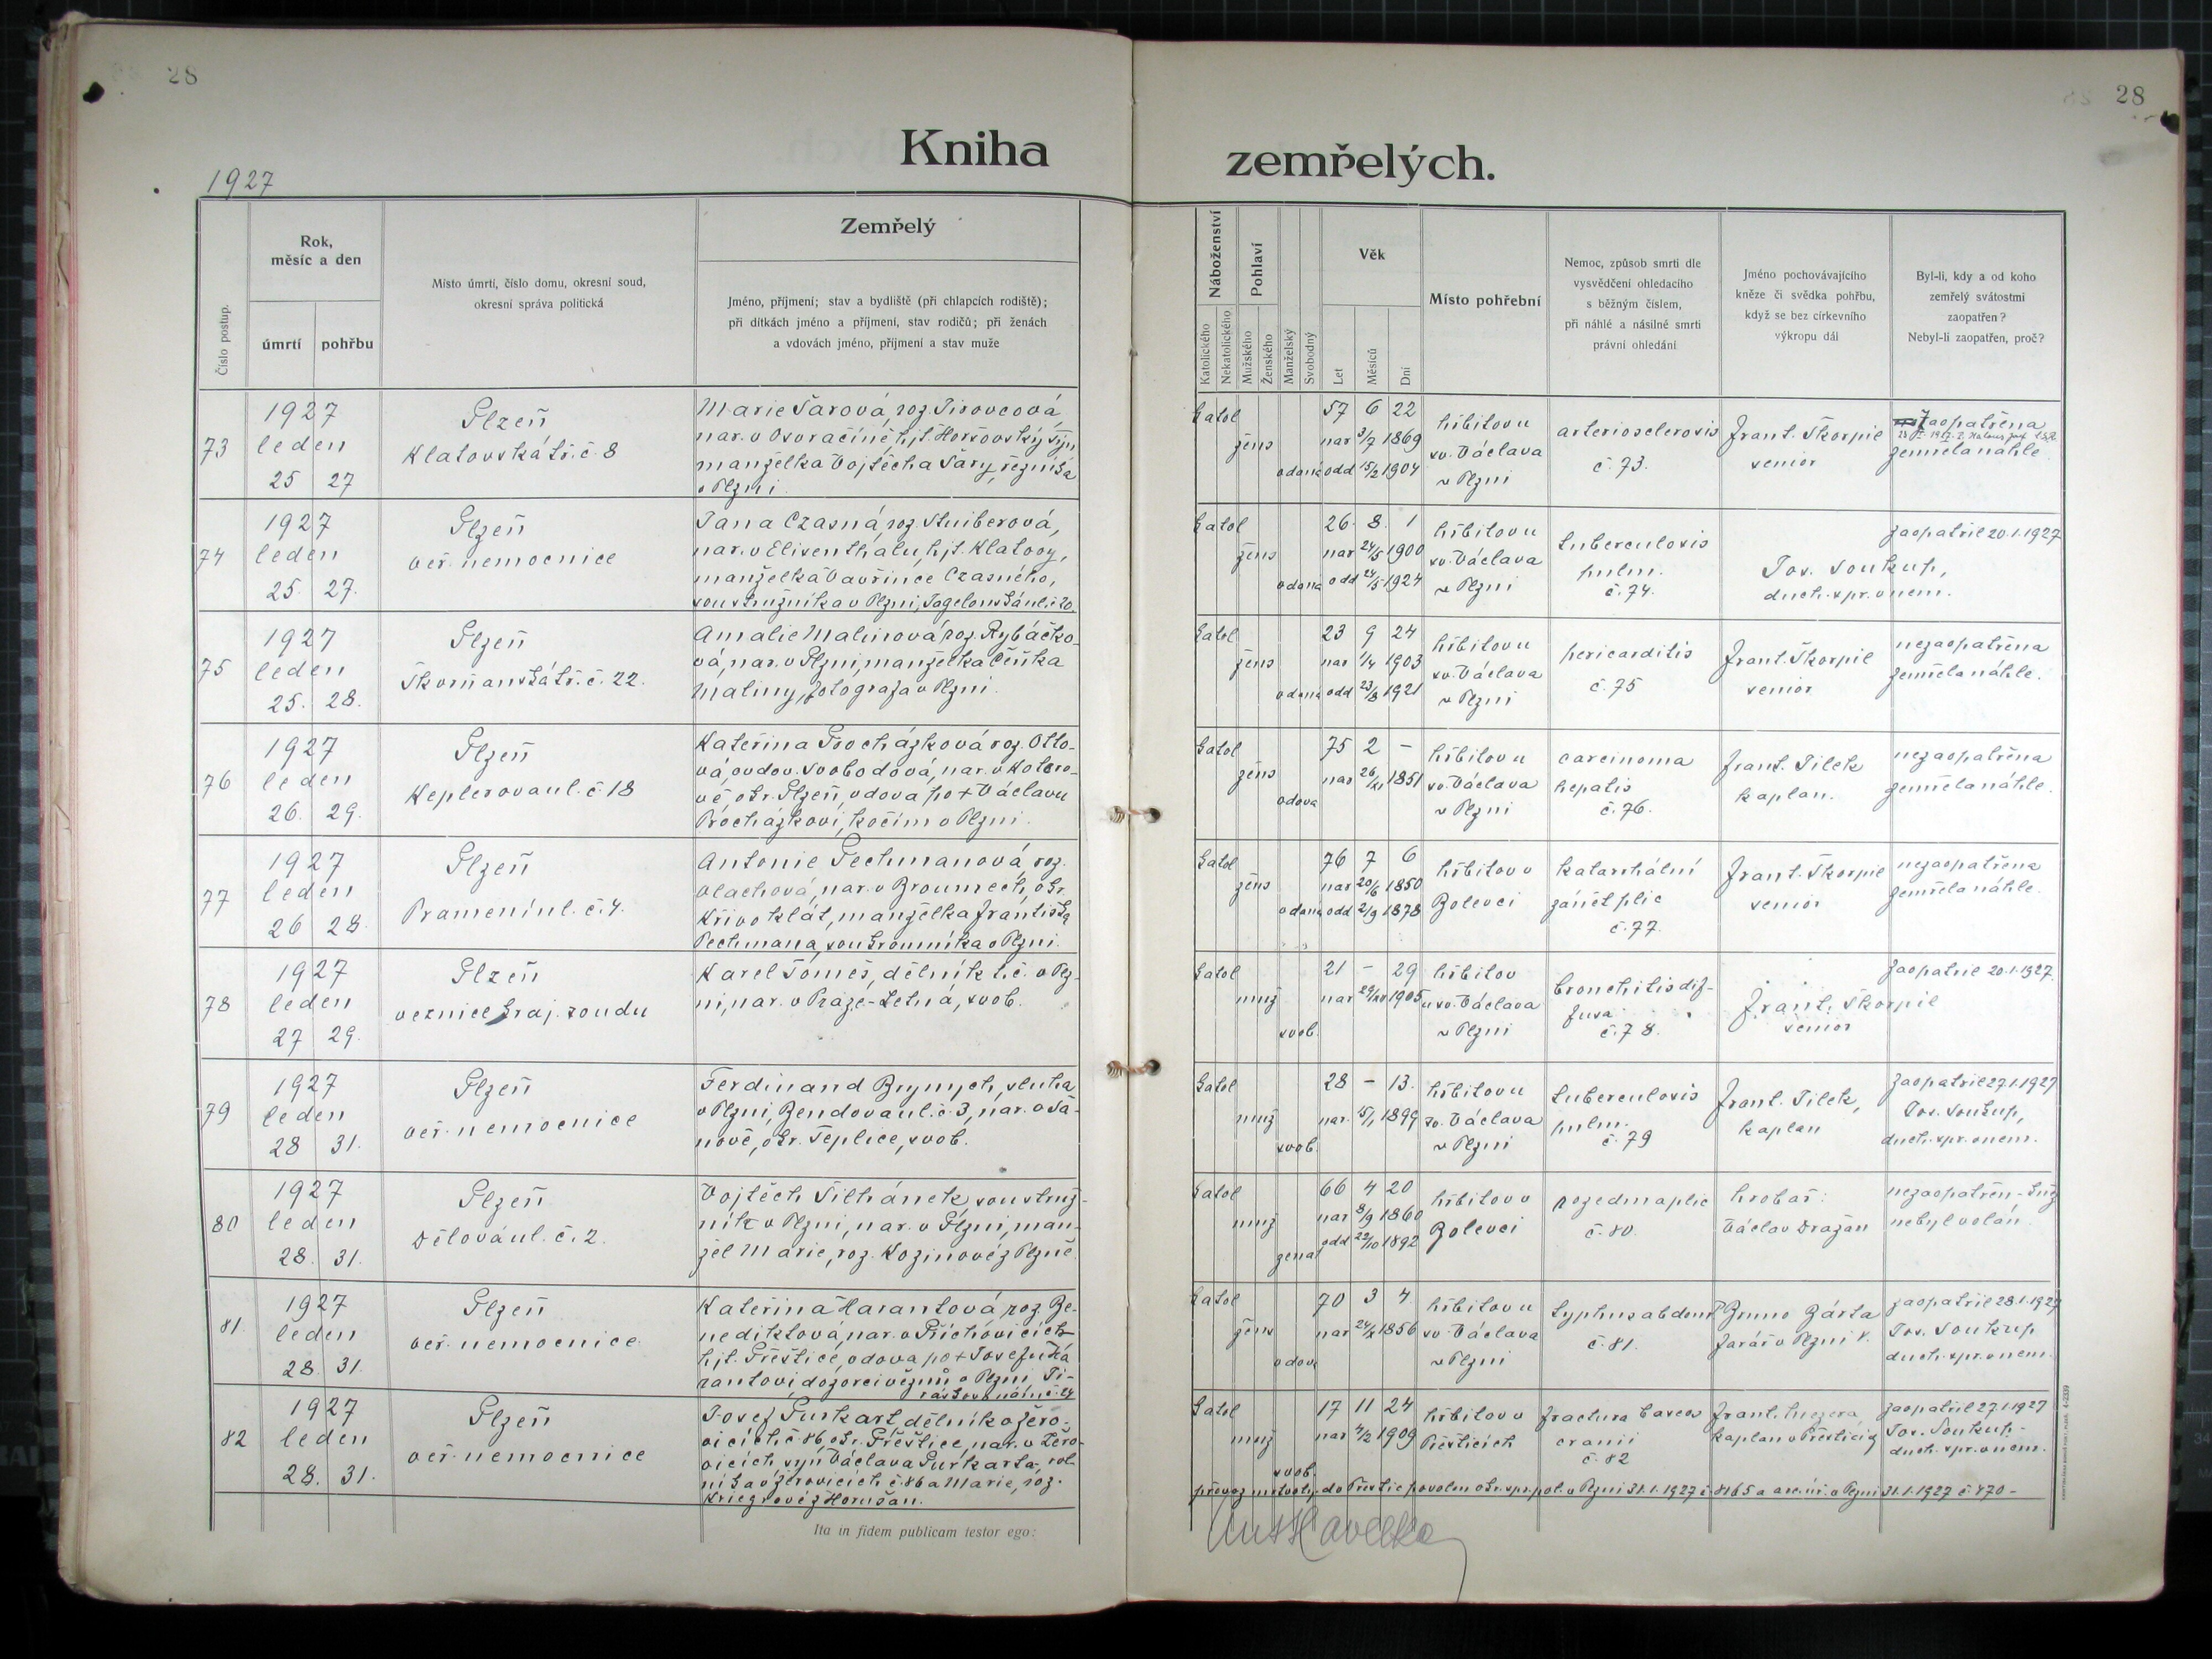 28
28
Kniha zemřelých.
1927
Číslo postup.
Rok,
měsíc a den
úmrtí
pohřbu
Místo úmrtí, číslo domu, okresní soud,
okresní správa politická
Zemřelý
Jméno, příjmení; stav a bydliště (při chlapcích rodiště);
při dítkách jméno a příjmení, stav rodičů; při ženách
a vdovách jméno, příjmení a stav muže
Náboženství
Katolického
Nekatolického
Pohlaví
Mužského
Ženského
Manželský
Svobodný
Věk
Let
Měsíců
Dní
Místo pohřební
Nemoc, způsob smrti dle
vysvědčení ohledacího
s běžným číslem,
při náhlé a násilné smrti
právní ohledání
Jméno pochovávajícího
kněze či svědka pohřbu,
když se bez církevního
výkropu dál
Byl-li, kdy a od koho
zemřelý svátostmi
zaopatřen?
Nebyl-li zaopatřen, proč?
73
1927
leden
25 27
Plzeň
Klatovská tř. č. 8
Marie Šárová, roz. Tirovcová,
nar. v Osvračíně hjt. Horšovský Týn
manželka Vojtěcha Šáry, řezníka
v Plzni.
katol
žens
odaná
57 6 22
nar 3/7 1869
odd 15/2 1904
hřbitov u
sv. Václava
v Plzni
arteriosclerosis
č. 73.
Frant. Škorpil
senior
zaopatřena
zemřela náhle
74
1927
leden
25. 27.
Plzeň
veř. nemocnice
Jana Czasná, roz. Stuiberová,
nar. v Elisenthalu, hjt. Klatovy,
manželka Vavřince Czasného,
soustružníka v Plzni, Jagelonská ul. č. 20
katol
žens
odaná
26. 8. 1
nar 24/5 1900
odd 24/5 1924
hřbitov u
sv. Václava
v Plzni
tuberculosis
pulm.
č. 74.
zaopatřil 20.1.1927
Jos. Soukup,
duch. spr. v nem.
75
1927
leden
25. 28.
Plzeň
Škorňanská tř. č. 22.
Amalie Malinová, roz. Rybáčko-
vá, nar. v Plzni, manželka Čeňka
Maliny, fotografa v Plzni.
katol
žens
odaná
23 9 24
nar 1/4 1903
odd 23/8 1921
hřbitov u
sv. Václava
v Plzni
pericarditis
č. 75
Frant. Škorpil
senior
nezaopatřena
zemřela náhle.
76
1927
leden
26. 29.
Plzeň
Keplerova ul. č. 18
Kateřina Procházková roz. Otto-
vá, ovdov. Svobodová, nar. v Kotero-
vě, okr. Plzeň, vdova po + Václavu
Procházkovi, kočím v Plzni.
katol
žens
vdova
75 2 -
nar 26/XI 1851
hřbitov u
sv. Václava
v Plzni
carcinoma
hepatis
č. 76.
Frant. Tilek
kaplan.
nezaopatřena
zemřela náhle.
77
1927
leden
26 28.
Plzeň
Pramení ul. č. 4.
Antonie Pechmanová, roz.
Vlachová, nar. v Broumech, okr.
Křivoklát, manželka Františka
Pechmana, soukromníka v Plzni.
katol
žens
odaná
76 7 6
nar 20/6 1850
odd 2/9 1878
hřbitov v
Bolevci
katarrhální
zánět plic
č. 77.
Frant. Škorpil
senior
nezaopatřena
zemřela náhle.
78
1927
leden
27 29.
Plzeň
veznice kraj. soudu
Karel Tomeš, dělník t.č. v Plz-
ni, nar. v Praze-Letná, svob.
katol
muž
svob.
21 - 29
nar 29/XII 1905
hřbitov
u sv. Václava
v Plzni
bronchitis dif-
fusa
č. 78.
zaopatřil 20.1.1927.
Frant. Škorpil
senior
79
1927
leden
28 31.
Plzeň
veř. nemocnice
Ferdinand Brymych, sluha
v Plzni, Bendova ul. č. 3, nar. v Šá-
nově, okr. Teplice, svob.
katol
muž
svob.
28 - 13.
nar. 15/1 1899
hřbitov u
sv. Václava
v Plzni
tuberculosis
pulm.
č. 79
Frant. Tilek,
kaplan
zaopatřil 27.1.1927
Jos. Soukup,
duch. spr. v nem.
80
1927
leden
28. 31.
Plzeň
Dělová ul. č. 2.
Vojtěch Šilhánek, soustruž-
ník v Plzni, nar. v Plzni, man-
žel Marie, roz. Kozinové z Plzně.
katol
muž
ženat
66 4 20
nar 8/9 1860
odd 22/10 1892
hřbitov v
Bolevci
rozedma plic
č. 80.
hrobař:
Václav Dražan
nezaopatřen - kněz
nebyl volán.
81.
1927
leden
28. 31.
Plzeň
veř. nemocnice
Kateřina Harantová, roz. Be-
nediktová, nar. v Příchovicích
hjt. Přeštice, vdova po + Josefu Ha
rantovi, dozorci vězňů v Plzni, Ji-
ráskovo nám. č. 24
katol
žens
vdova
70 3 4
nar 24/X 1856
hřbitov u
sv. Václava
v Plzni
typhus abdom
č. 81.
P Bruno Bárta
farář v Plzni V.
zaopatřil 28.1.1927
Jos. Soukup
duch. spr. v nem.
82
1927
leden
28. 31.
Plzeň
veř. nemocnice
Josef Purkart, dělník v Žero-
vicích č. 86, okr. Přeštice, nar. v Žero-
vicích, syn Václava Purkarta, rol-
níka v Žerovicích č. 86 a Marie, roz.
Kriegrové z Horušan.
katol
muž
svob.
17 11 24
nar 4/2 1909
hřbitov v
Přešticích
fractura baseos
cranii
č. 82
Frant.
kaplan v Přešticích
zaopatřil 27.1.1927
Jos. Soukup -
duch. spr. v nem.
převoz mrtvoly do Přeštic povolen okr. spr. pol. v Plzni 31.1.1927 č. 8165 a arc. úř. v Plzni 31.1.1927 č. 870 -
Ita in fidem publicam testor ego: